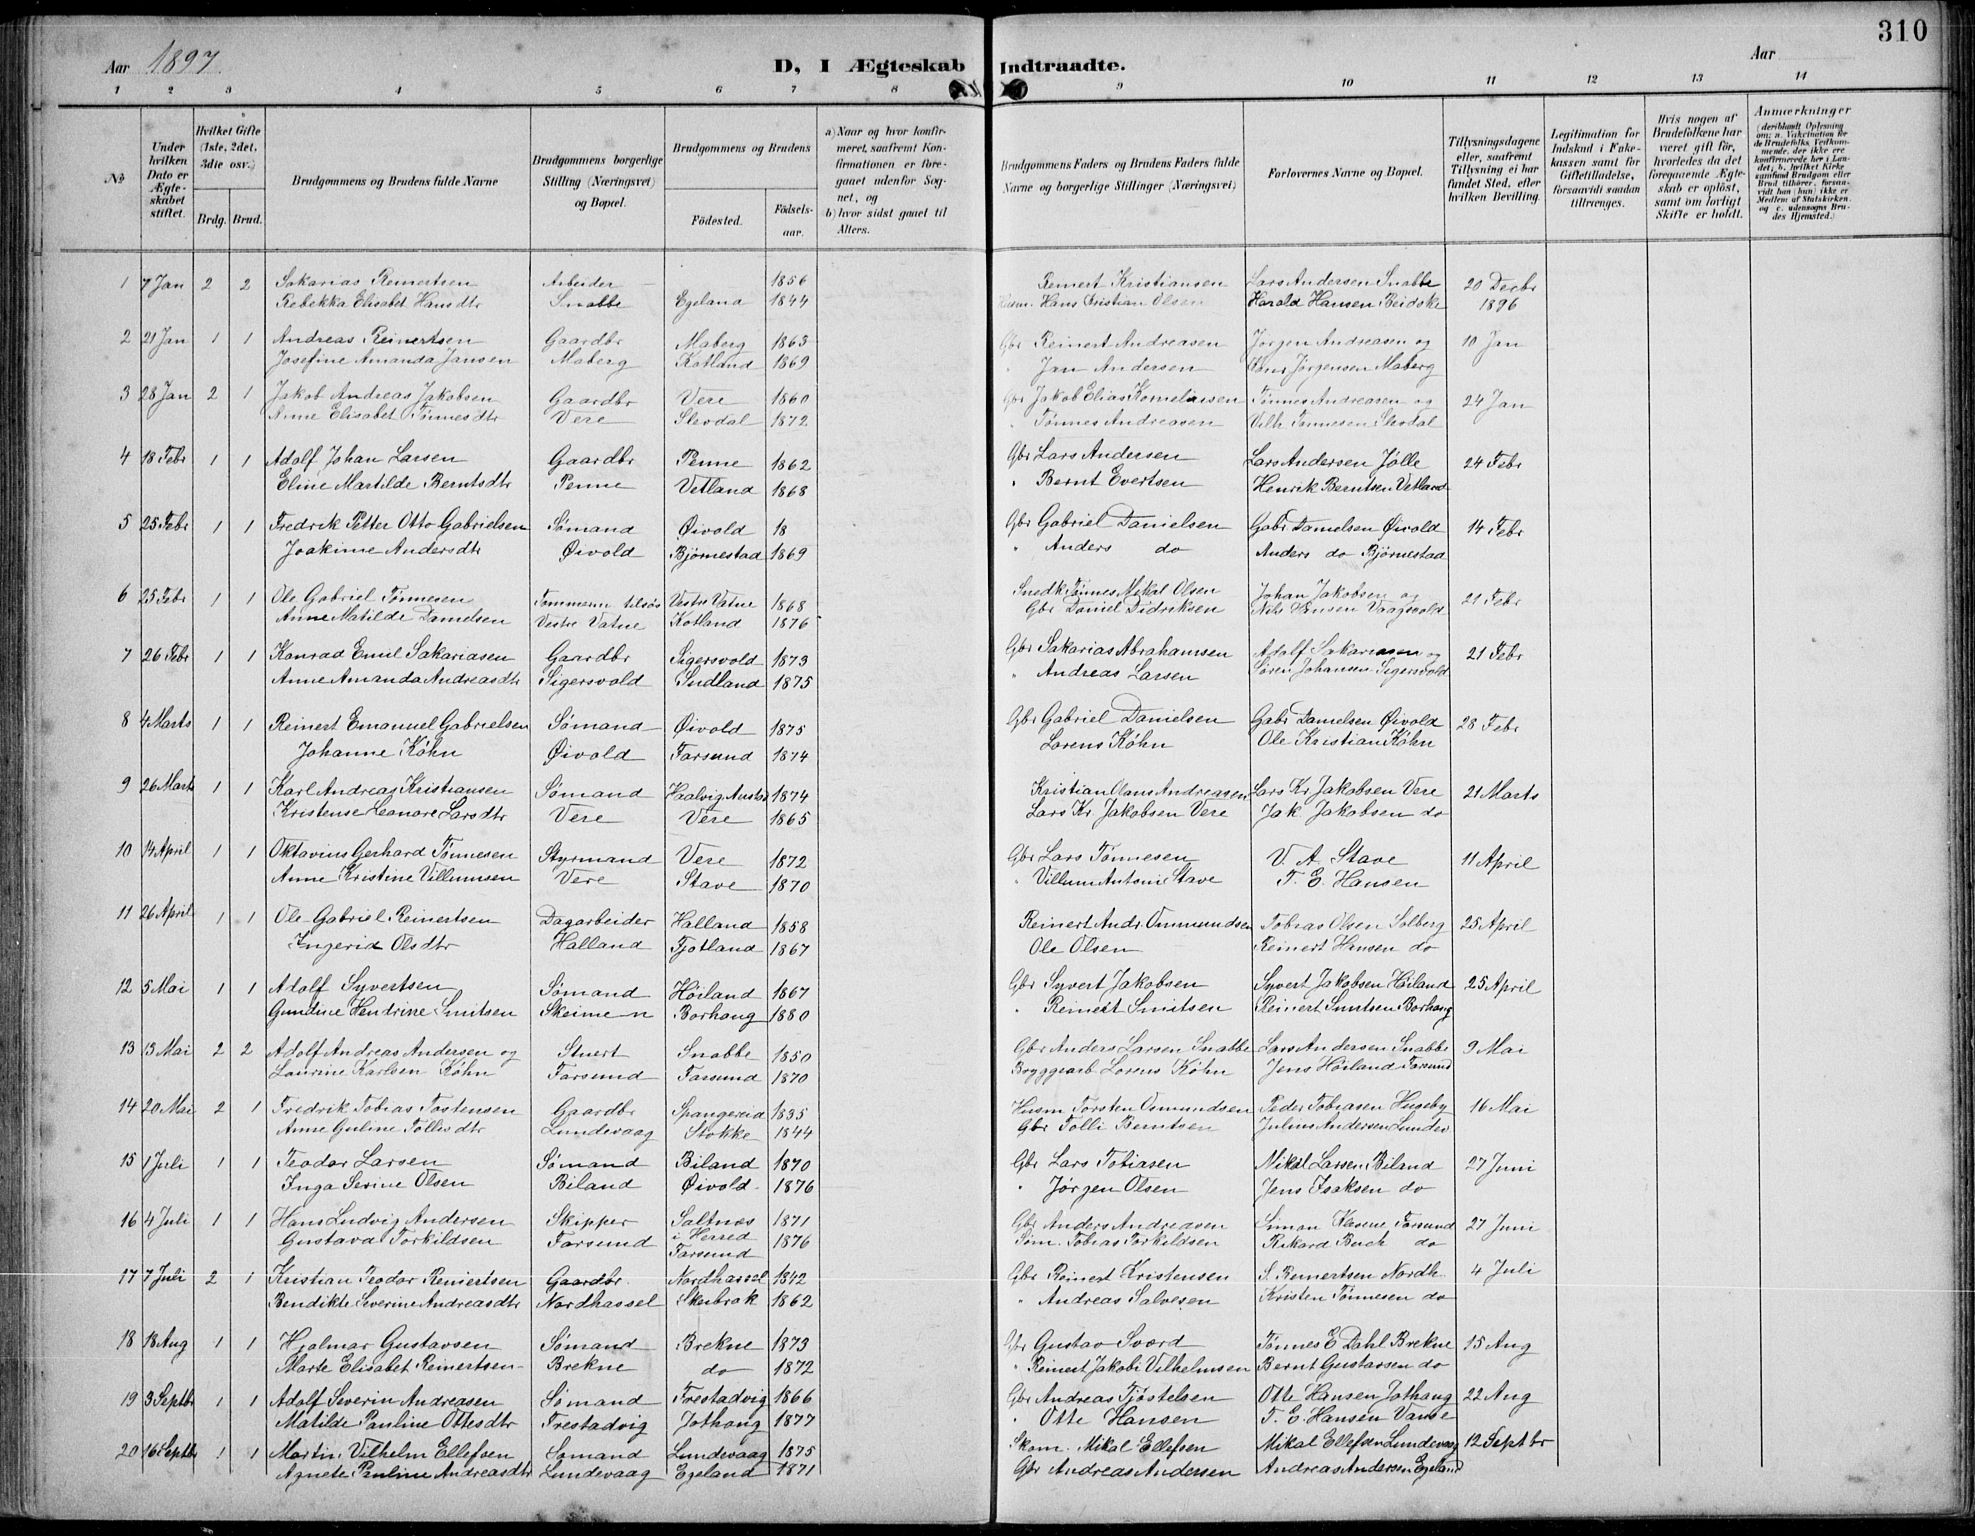 310
Aar 1897.
D, I Ægteskab Indtraadte.
Aar
1 2 3 4 5 6 7 8 9 10 11 12 13 14
№
Under hvilken Dato er Ægteskabet stiftet.
Hvilket Gifte (1ste, 2det, 3die osv.)
Brdg. Brud.
Brudgommens og Brudens fulde Navne
Brudgommens borgerlige Stilling (Næringsvei) og Bopæl.
Brudgommens og Brudens
Födested. Födselsaar.
a) Naar og hvor konfirmeret, saafremt Konfirmationen er foregaaet udenfor Sognet, og
b) hvor sidst gaaet til Alters.
Brudgommens Faders og Brudens Faders fulde Navne og borgerlige Stillinger (Næringsvei)
Forlovernes Navne og Bopæl.
Tillysningsdagene eller, saafremt Tillysning ei har fundet Sted, efter hvilken Bevilling.
Legitimation for Indskud i Enkekassen samt for Giftetilladelse, forsaavidt saadan tiltrænges.
Hvis nogen af Brudefolkene har været gift för, hvorledes da det foregaaende Ægteskab er oplöst, samt om lovligt Skifte er holdt.
Anmærkninger
1 7 Jan 2 2 Sakarias Reinertsen Arbeider 1856 Reinert Kristiansen Lars Andersen Snabbe 20 Decbr
Rebekka Elisabet Hansdtr Snabbe Egeland 1844 Hans Kristian Olsen Harald Hansen Beidske 1896
2 21 Jan 1 1 Andreas Reinertsen Gaardbr Maberg 1863 Gbr Reinert Andreasen Jørgen Andreasen og 10 Jan
Josefine Amanda Jansen Maberg Kotland 1869 " Jan Andersen Hans Jørgensen Maberg
3 28 Jan 2 1 Jakob Andreas Jakobsen Gaardbr Vere 1860 Gbr Jakob Elias Korneliusen Tønnes Andreasen og 24 Jan
Anne Elisabet Tønnesdtr Vere Slevdal 1872 " Tønnes Andreasen Vilh Tønnesen Slevdal
4 18 Febr 1 1 Adolf Johan Larsen Gaardbr Penne 1862 Gbr Lars Andersen Lars Andersen Jølle 24 Febr
Eline Martilde Berntsdtr Penne Vetland 1868 " Bernt Evertsen Henrik Berntsen Vetland
5 25 Febr 1 1 Fredrik Petter Otto Gabrielsen Sømand Øivold 18 Gbr Gabriel Danielsen Gabr Danielsen Øivold 14 Febr
Joakime Andersdtr Øivold Bjørnestad 1869 " Anders do Anders do Bjørnestad
6 25 Febr 1 1 Ole Gabriel Tønnesen Tømmerm tilsøs Vestre Vatne 1868 Snedk Tønnes Mikal Olsen Johan Jakobsen og 21 Febr
Anne Matilde Danielsen Vestre Vatne Kotland 1876 Gbr Daniel Didriksen Nils Hansen Vaagsvold
7 26 Febr 1 1 Konrad Emil Sakariasen Gaardbr Sigersvold 1873 Gbr Sakarias Abrahamsen Adolf Sakariasen og 21 Febr
Anne Amanda Andreasdtr Sigersvold Sudland 1875 " Andreas Larsen Søren Johansen Sigersvold
8 4 Marts 1 1 Reinert Emanuel Gabrielsen Sømand Øivold 1875 Gbr Gabriel Danielsen Gabr Danielsen Øivold 28 Febr
Johanne Køhn Øivold Farsund 1874 Lorens Køhn Ole Kristian Køhn
9 26 Marts 1 1 Karl Andreas Kristiansen Sømand Haalvig Austad 1874 Kristian Olaus Andreasen Lars Kr Jakobsen Vere 21 Marts
Kristense Leonore Larsdtr Vere Vere 1865 Lars Kr. Jakobsen Vere Jak Jakobsen do
10 14 April 1 1 Oktavius Gerhard Tønnesen Styrmand Vere 1872 Gbr Lars Tønnesen V. A. Stave 11 April
Anne Kristine Villumsen Vere Stave 1870 " Villum Antoni Stave T. E. Hansen
11 26 April 1 1 Ole Gabriel Reinertsen Dagarbeider Halland 1858 Reinert Andr. Ommundsen Tobias Olsen Solberg 25 April
Ingerid Olsdtr Halland Fjotland 1867 Ole Olsen Reinert Hansen do
12 5 Mai 1 1 Adolf Syvertsen Sømand Høiland 1867 Gbr Syvert Jakobsen Syvert Jakobsen Høiland 25 April
Gundine Hendrine Smitsen Skeimen Borhaug 1880 " Reinert Smitsen Reinert Smitsen Borhaug
13 13 Mai 2 2 Adolf Andreas Andersen og Stuert Snabbe 1850 Gbr Anders Larsen Snabbe Lars Andersen Snabbe 9 Mai
Laurine Karlsen Køhn Farsund Farsund 1870 Bryggearb Lorens Køhn Jens Høiland Farsund
14 20 Mai 2 1 Fredrik Tobias Tostensen Gaardbr Spangereid 1835 Husm Torsten Osmundsen Peder Tobiasen Hugeby 16 Mai
Anne Guline Tollisdtr Lundevaag Stokke 1844 Gbr Tolli Berntsen Julius Andersen Lundev
15 1 Juli 1 1 Teodor Larsen Sømand Biland 1870 Gbr Lars Tobiasen Mikal Larsen Biland 27 Juni
Inga Serine Olsen Biland Øivold 1876 " Jørgen Olsen Jens Isaksen do
16 4 Juli 1 1 Hans Ludvig Andersen Skipper Saltnes 1871 Gbr Anders Andreasen Simon Klevene Farsund 27 Juni
Gustava Torkildsen Farsund i Herred Farsund 1876 Søm. Tobias Torkildsen Rikard Buch do
17 7 Juli 2 1 Kristian Teodor Reinertsen Gaardbr. Nordhassel 1842 Gbr Reinert Kristensen S. Reinertsen Nordh. 4 Juli
Bendikte Severine Andreasdtr Nordhassel Skeibrok 1862 " Andreas Salvesen Kristen Tønnesen do
18 18 Aug 1 1 Hjalmar Gustavsen Sømand Brekne 1873 Gbr Gustav Sværd Tønnes E Dahl Brekne 15 Aug
Marte Elisabet Reinertsen Brekne do 1872 " Reinert Jakob Vilhelmsen Bernt Gustavsen do
19 3 Septbr 1 1 Adolf Severin Andreasen Sømand Frestadvig 1866 Gbr Andreas Tjøstelsen Otte Hansen Jothaug 22 Aug
Matilde Pauline Ottesdtr Frestadvig Jothaug 1877 " Otte Hansen T. E. Hansen Vanse
20 16 Septbr 1 1 Martin Vilhelm Ellefsen Sømand Lundevaag 1875 Skom. Mikal Ellefsen Mikal Ellefsen Lundevaag 12 Septbr
Agnete Pauline Andreasdtr Lundevaag Egeland 1871 Gbr Andreas Andersen Andreas Andersen Egeland